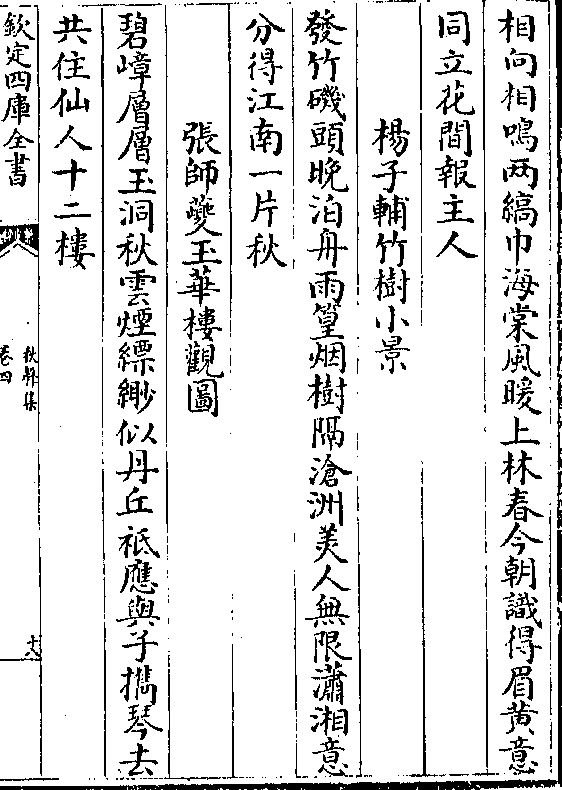 相向相鳴两縞巾海棠風暖上林春今朝識得眉黄意
同立花間報主人
楊子輔竹樹小景
發竹磯頭晚泊舟雨篁烟樹隔滄洲美人無限瀟湘意
分得江南一片秋
張師夔玉華樓觀圖
碧嶂層層玉洞秋雲煙縹緲似丹丘祗應與子攜琴去
共住仙人十二樓
欽定四庫全書
秋聲集
卷四
十八